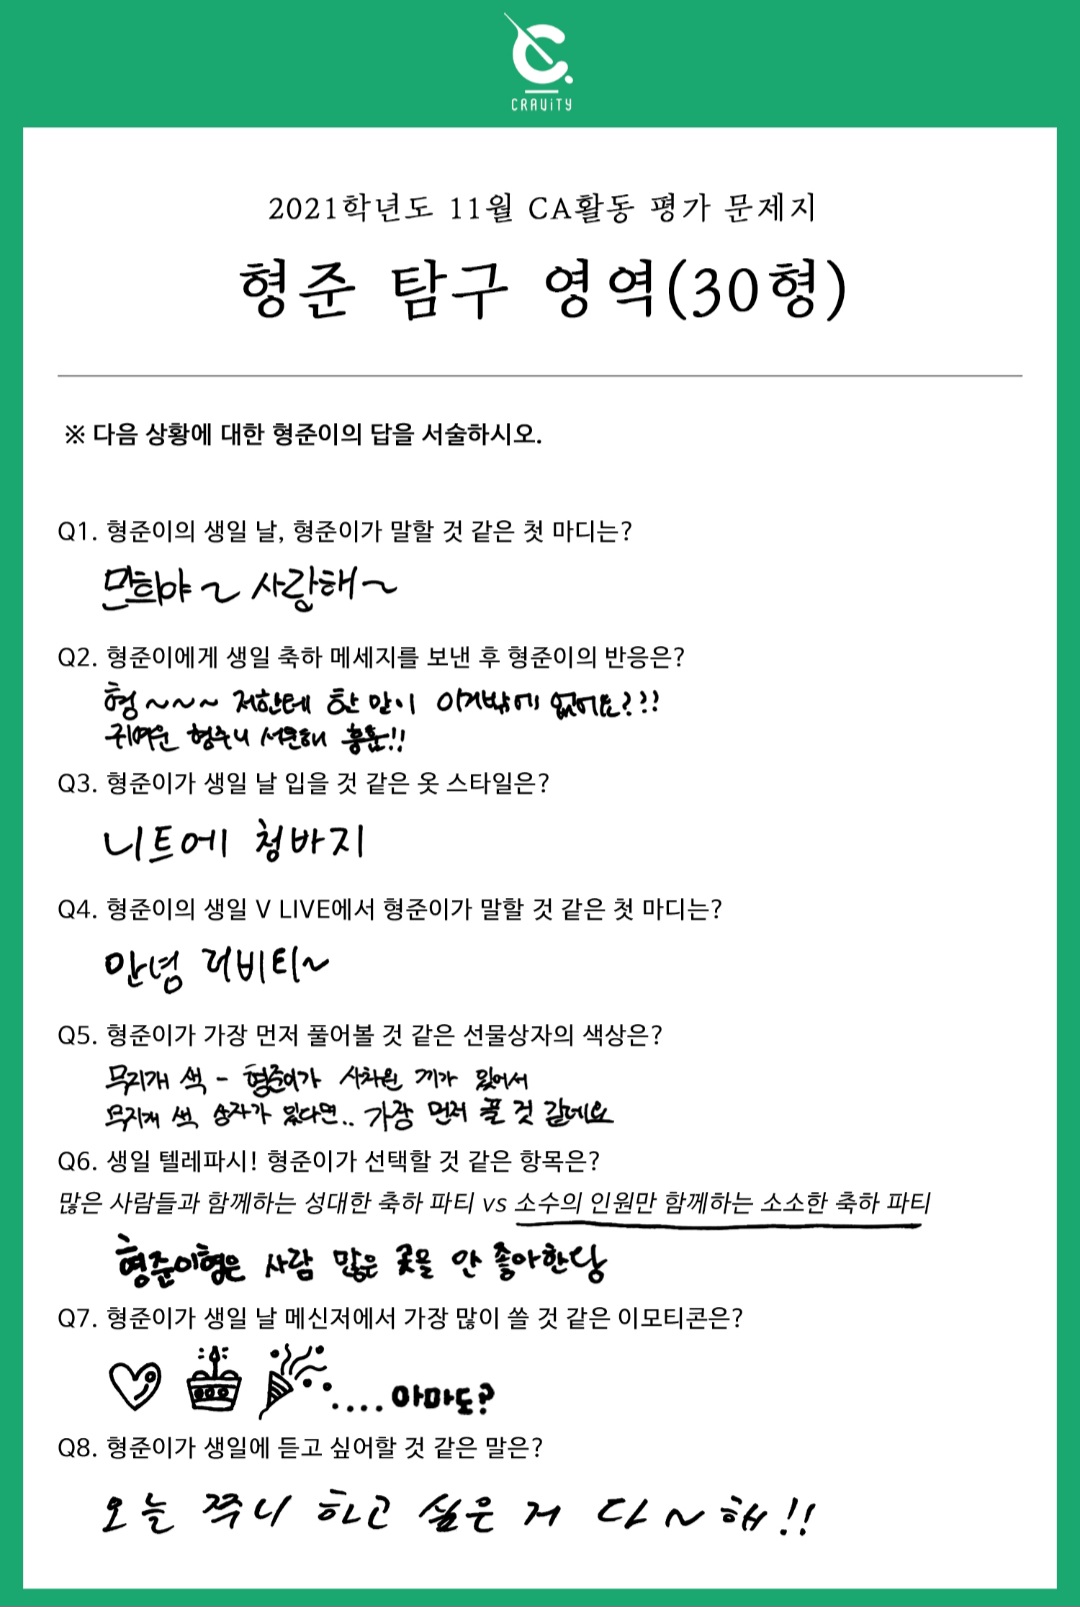 CRAVITY
2021학년도 11월 CA활동 평가 문제지
형준 탐구 영역(30형)
※ 다음 상황에 대한 형준이의 답을 서술하시오.
Q1. 형준이의 생일 날, 형준이가 말할 것 같은 첫 마디는?
민희야~ 사랑해~
Q2. 형준이에게 생일 축하 메세지를 보낸 후 형준이의 반응은?
형~~~ 저한테 한 말이 이거밖에 없어요???
귀여운 형주니 서운해 흥흥!!
Q3. 형준이가 생일 날 입을 것 같은 옷 스타일은?
니트에 청바지
Q4. 형준이의 생일 V LIVE에서 형준이가 말할 것 같은 첫 마디는?
안녕 러비티~
Q5. 형준이가 가장 먼저 풀어볼 것 같은 선물상자의 색상은?
무지개 색 - 형준이가 사차원 끼가 있어서
무지개 색 상자가 있다면.. 가장 먼저 풀 것 같네요
Q6. 생일 텔레파시! 형준이가 선택할 것 같은 항목은?
많은 사람들과 함께하는 성대한 축하 파티 vs 소수의 인원만 함께하는 소소한 축하 파티
형준이형은 사람 많은 곳을 안 좋아한당
Q7. 형준이가 생일 날 메신저에서 가장 많이 쓸 것 같은 이모티콘은?
.... 아마도?
Q8. 형준이가 생일에 듣고 싶어할 것 같은 말은?
오늘 쭈니 하고 싶은 거 다~해!!